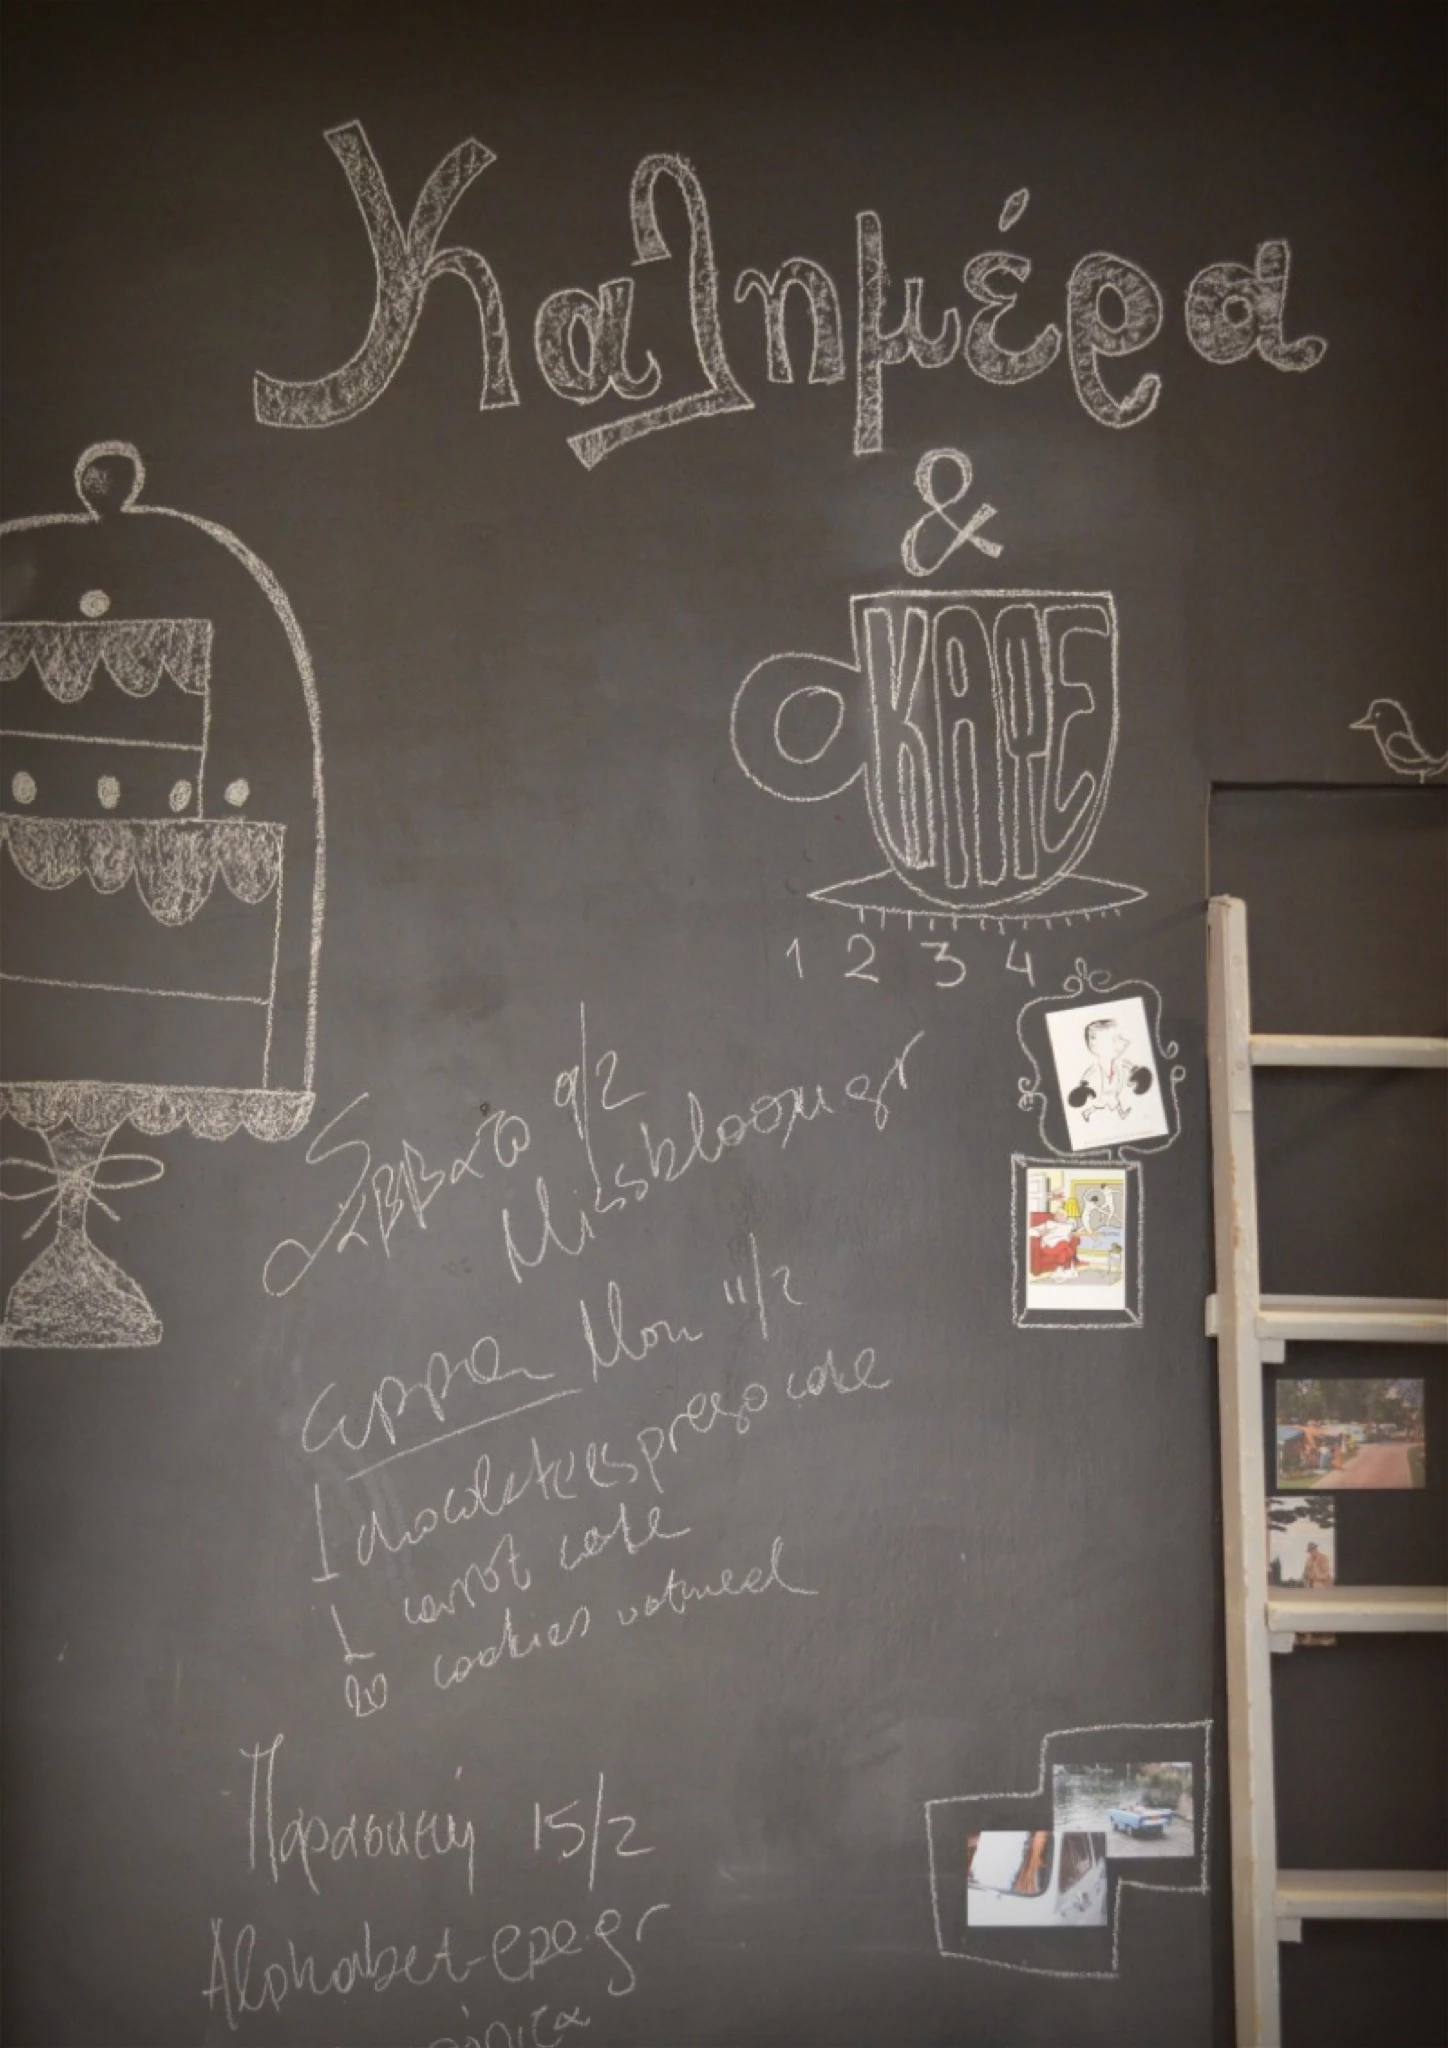 Καλημέρα
&
ΚΑΦΕ
1 2 3 4
Σάββατο 9/2
Missbloom.gr
Mon 11/2
1 chocolate espresso cake
1 carrot cake
20 cookies oatmeal
Παρασκευή 15/2
Alphabet-epe.gr